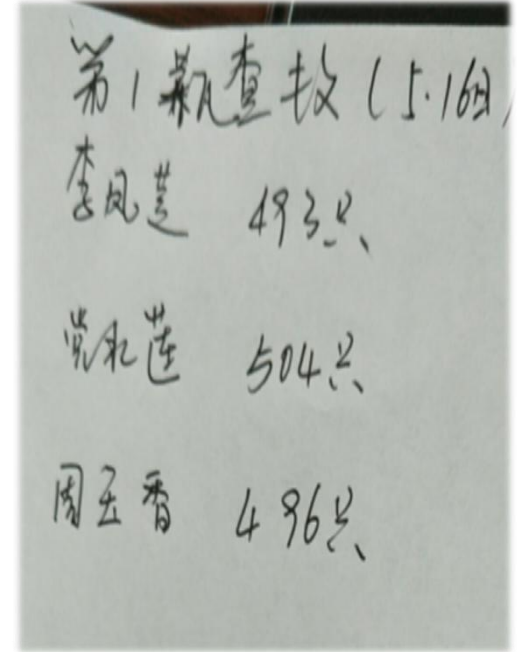 第1瓶查数(5.16日)
李凤莲 493只、
党永莲 504只、
周玉香 496只、